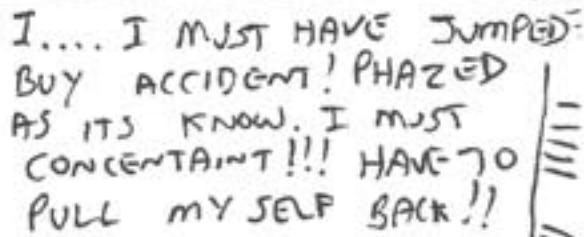 I.... I MUST HAVE JUMPED
BUY ACCIDENT! PHAZED
AS ITS KNOW. I MUST
CONCENTAINT!!! HAVE TO
PULL MY SELF BACK!!